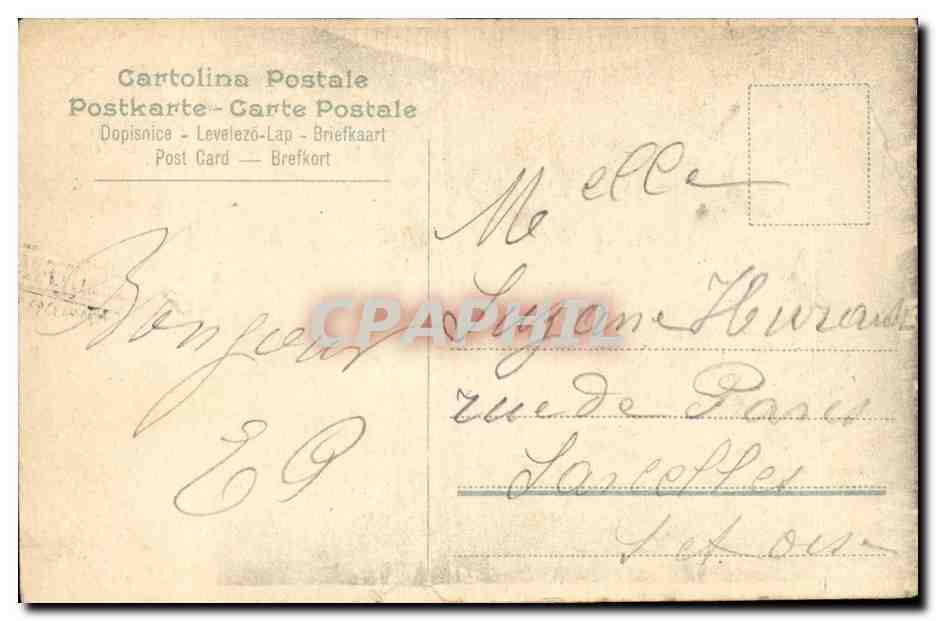 Cartolina Postale
Postkarte - Carte Postale
Dopisnice - Levelező-Lap - Briefkaart
Post Card — Brefkort
Bonjour
E P
Melle
Suzane
rue de Paris
Sarcelles
S et oise
CPAPHIL